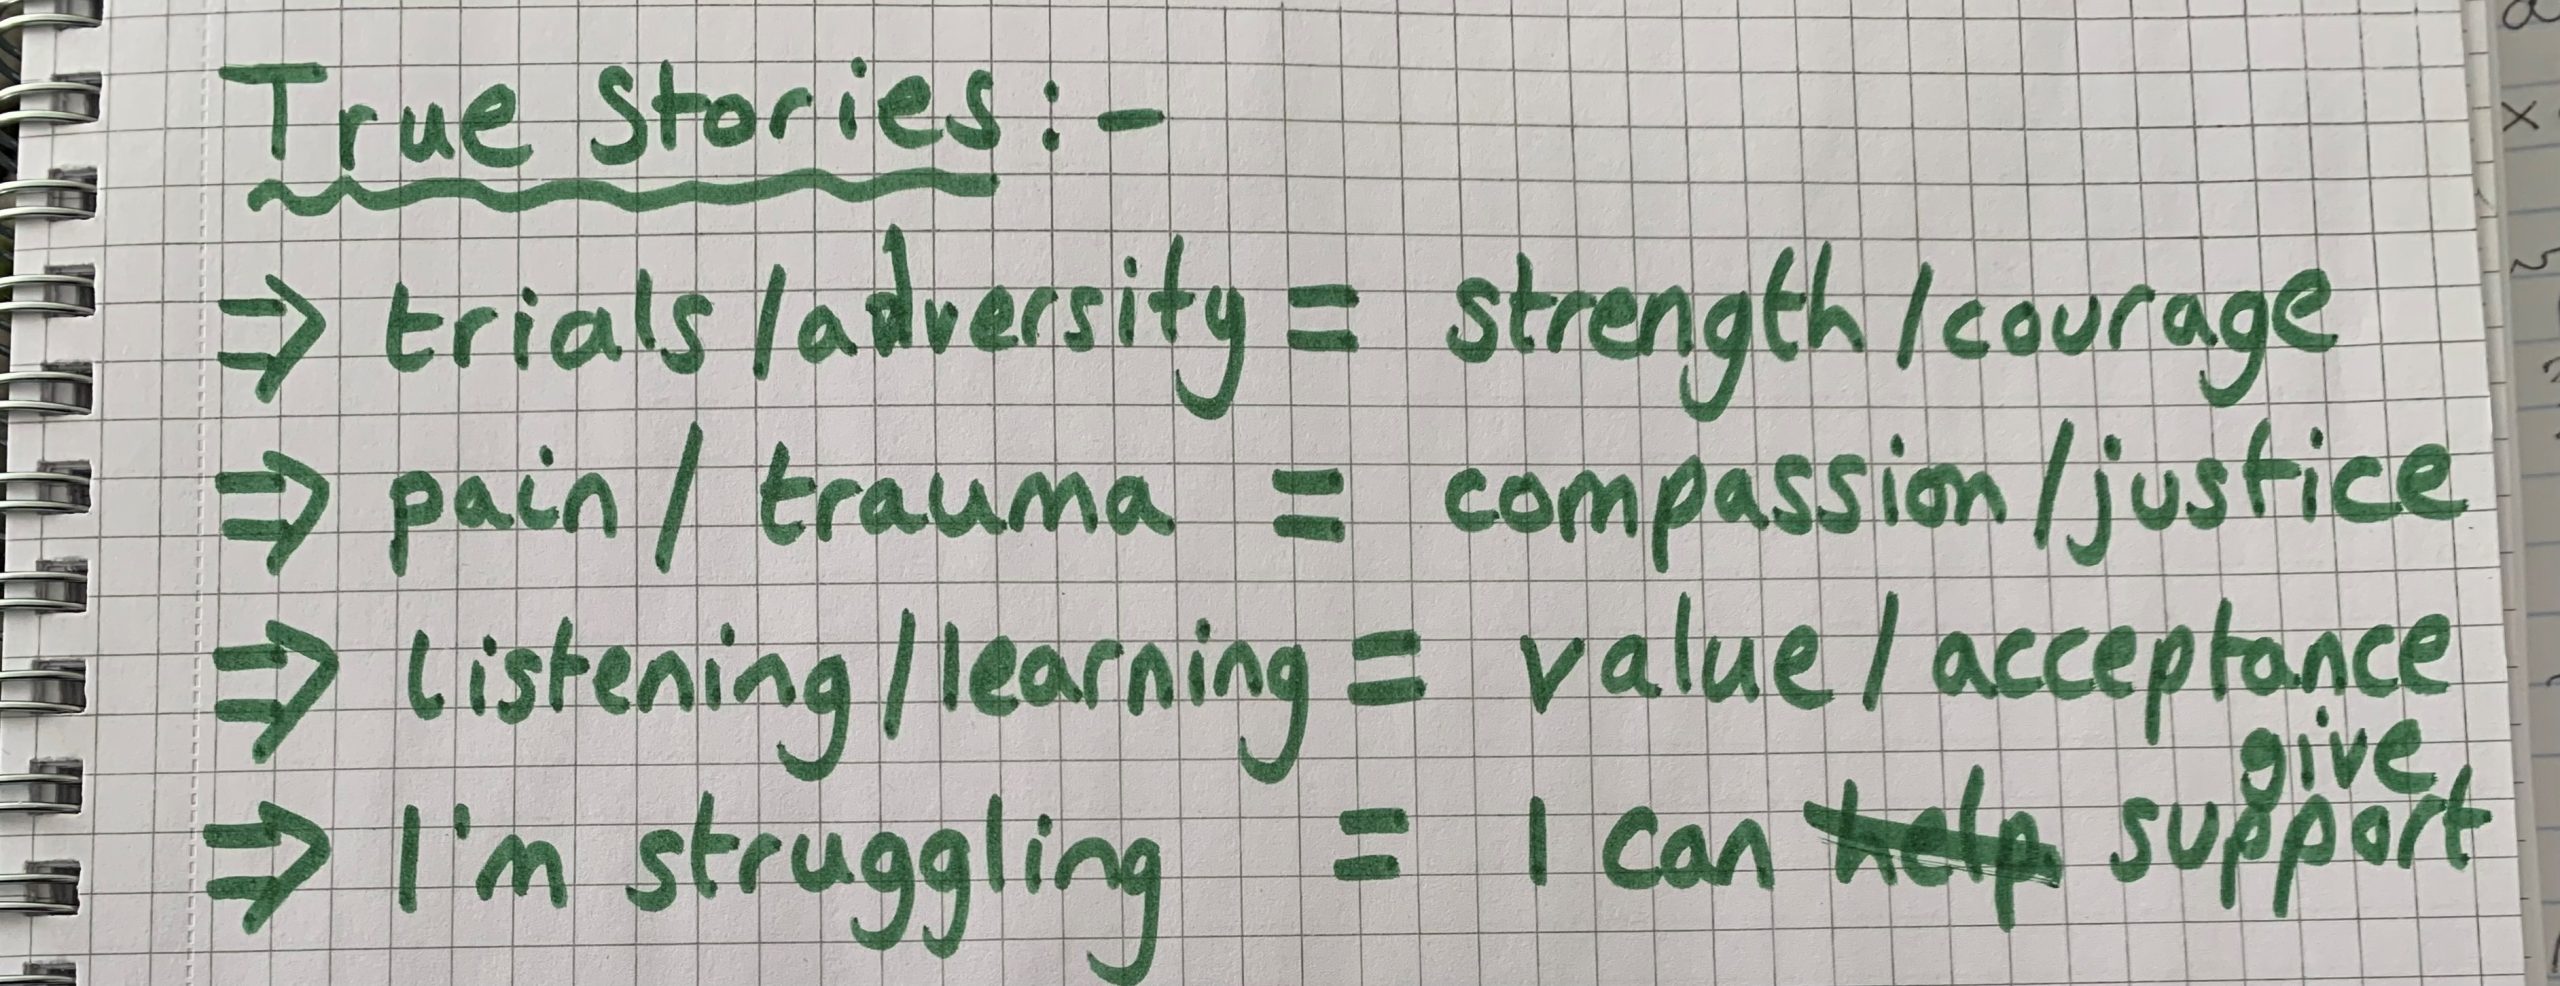 True Stories:-
⇒ trials/adversity = strength/courage
⇒ pain/trauma = compassion/justice
⇒ listening/learning = value/acceptance
give
⇒ I'm struggling = I can help support